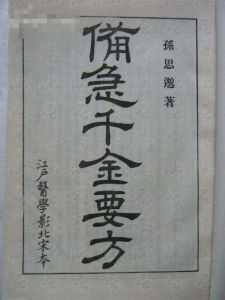 孫思邈著
備急千金要方
江戸醫學影北宋本